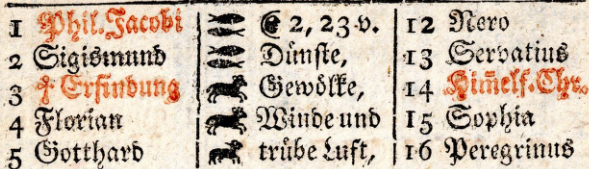 1 Phil. Jacobi ☾ 2, 23 v. 12 Nero
2 Sigismund Dünste, 13 Servatius
3 ☨ Erfindung Gewölke, 14 Him̃elf. Chr.
4 Florian Winde und 15 Sophia
5 Gotthard trübe Luft, 16 Peregrinus